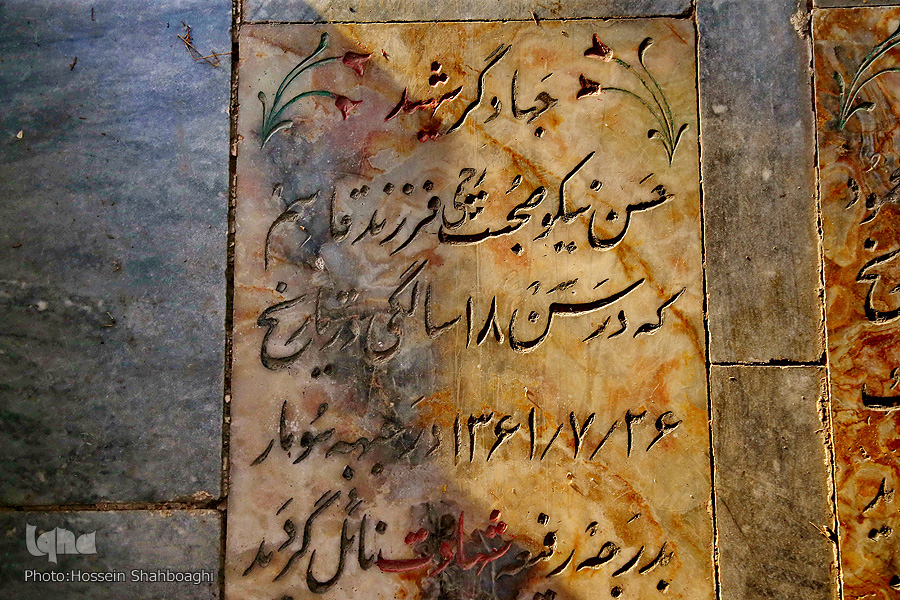 جهادگر شهید
حسن نیکو صحبت چی فرزند قاسم
که در سن ۱۸ سالگی در تاریخ
۱۳۶۱/۷/۲۶ در جبهه سومار
بدرجه رفیعه شهادت نائل گردید
iqna
Photo:Hossein Shahboaghi